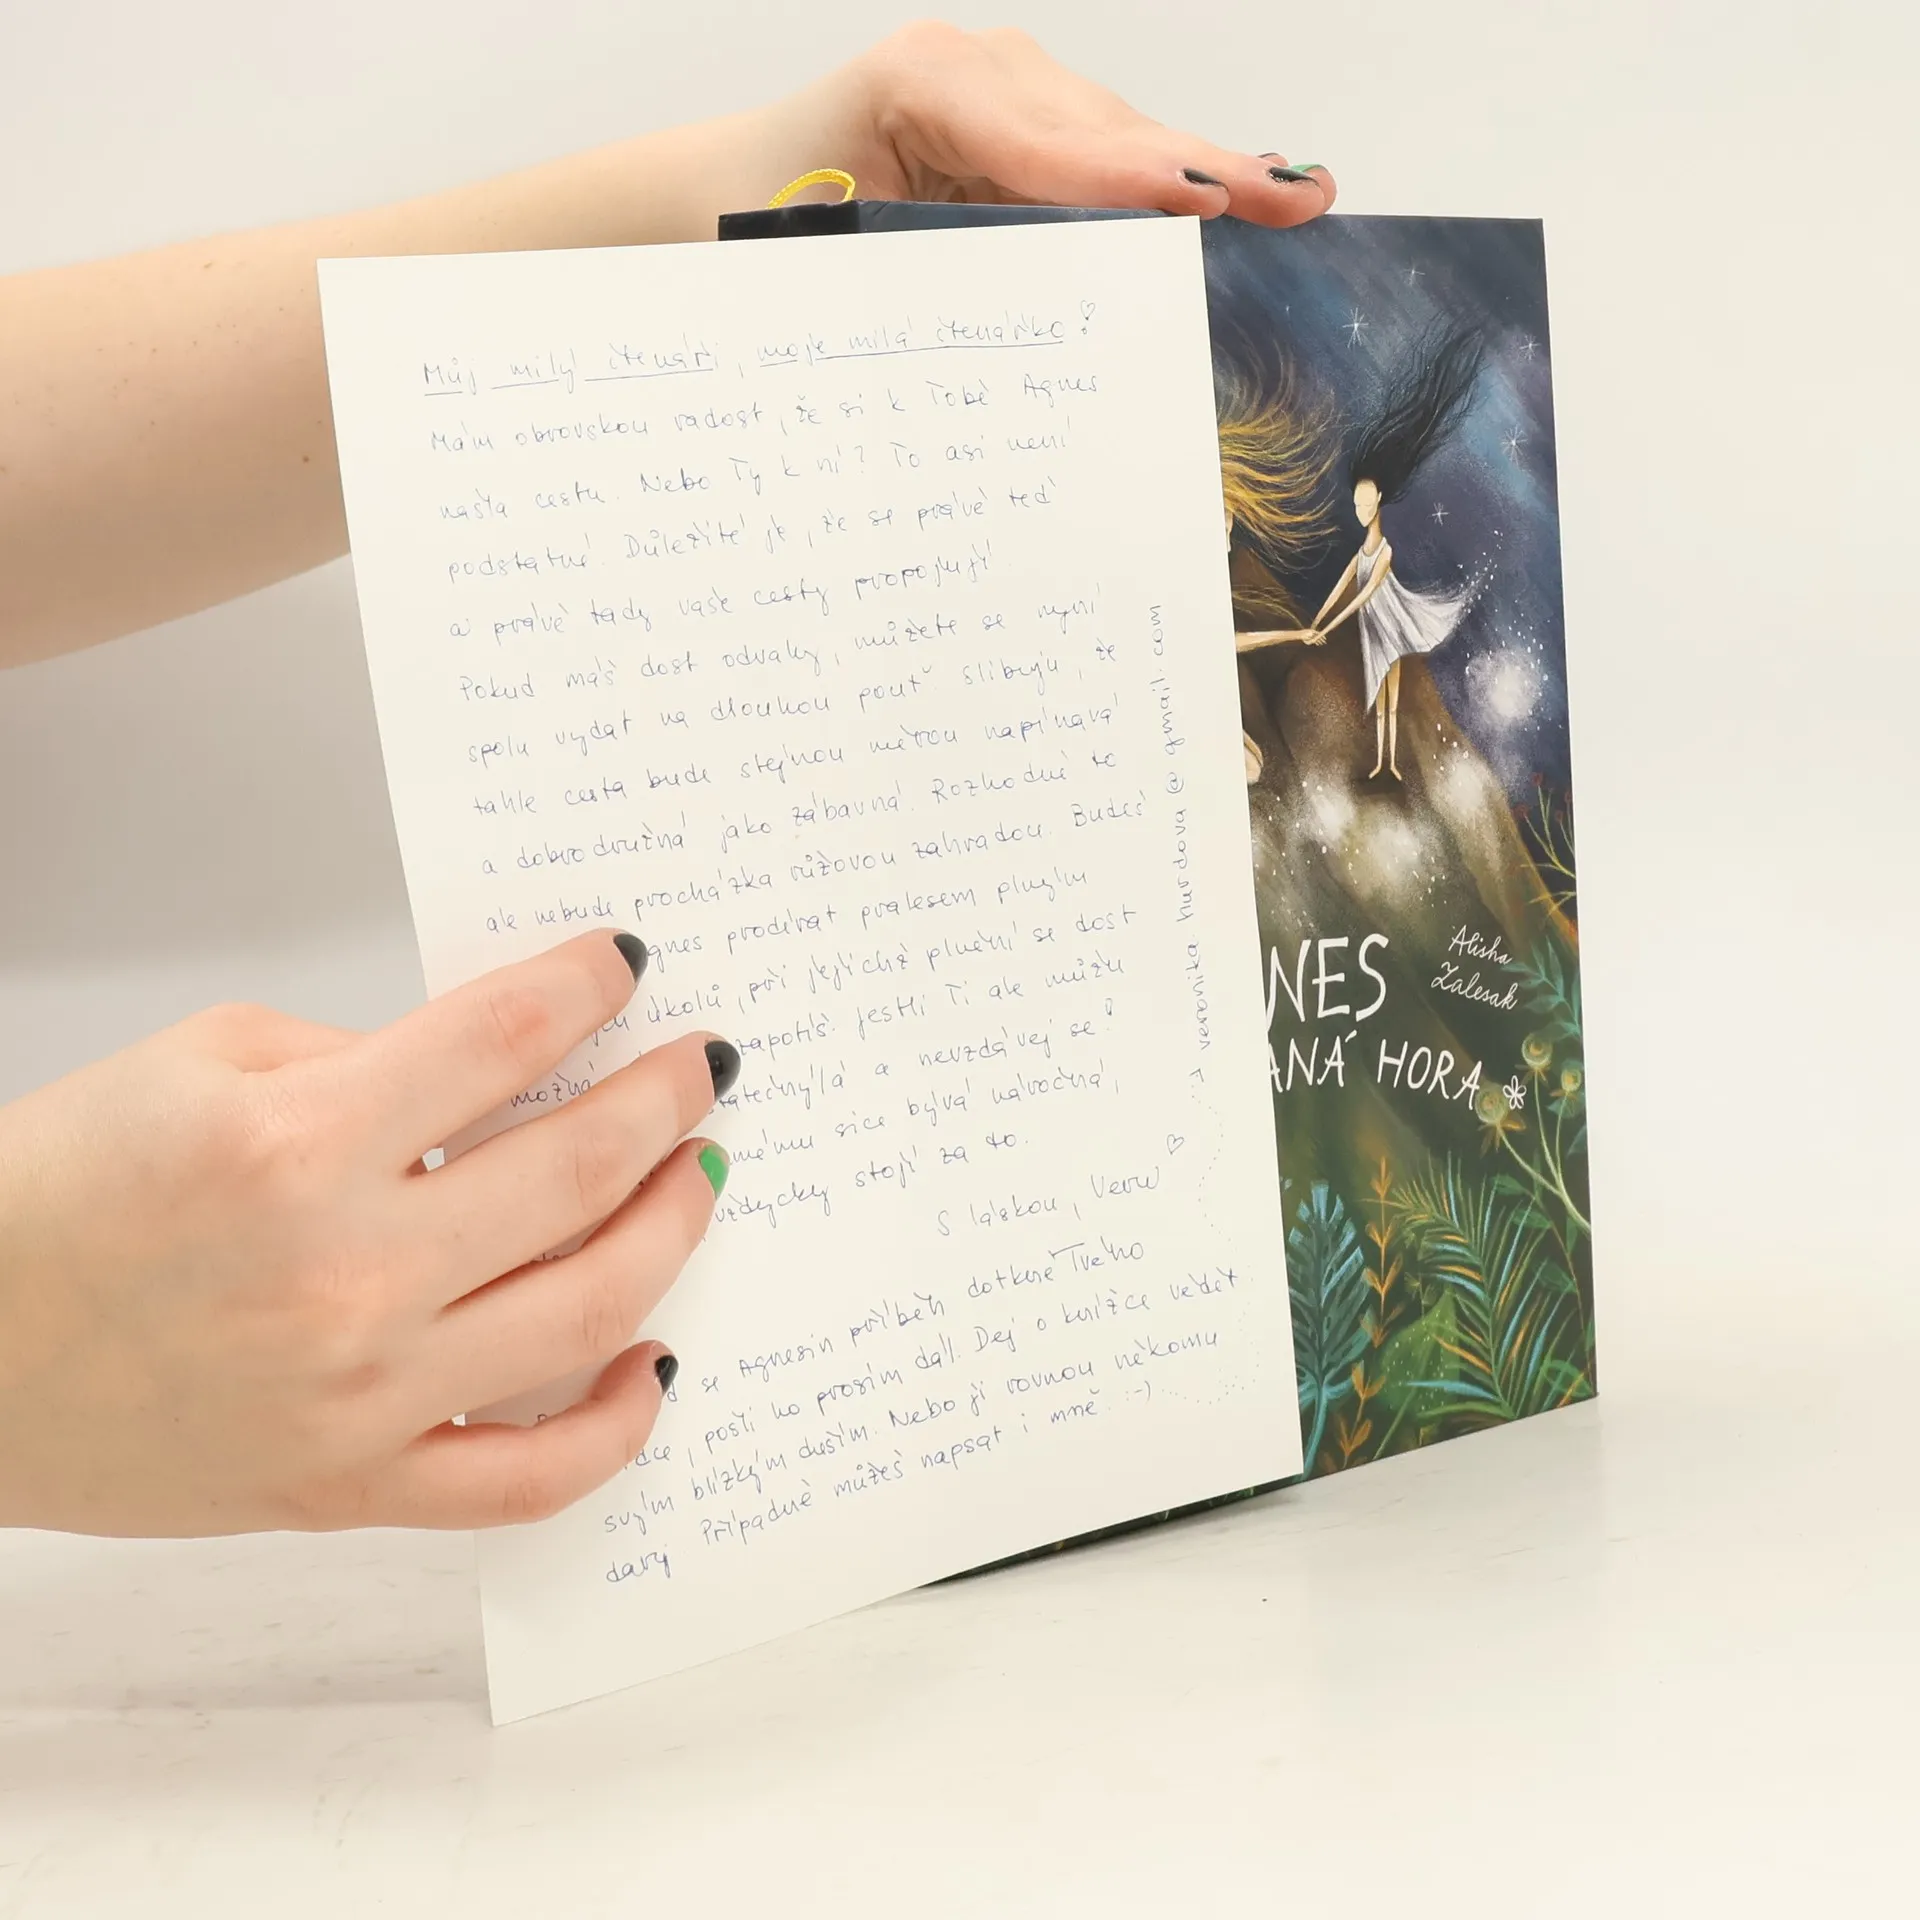 Můj milý čtenáři, moje milá čtenářko!
Mám obrovskou radost, že si k Tobě Agnes
našla cestu. Nebo Ty k ní? To asi není
podstatné. Důležité je, že se právě teď
a právě tady vaše cesty propojují.
Pokud máš dost odvahy, můžete se nyní
spolu vydat na dlouhou pouť. Slibuju, že
tahle cesta bude stejnou měrou napínavá
a dobrodružná jako zábavná. Rozhodně to
ale nebude procházka růžovou zahradou. Budeš
gnes prodírat pralesem plným
úkolů, při jejichž plnění se dost
možná zapotíš. Jestli Ti ale můžu
tatečný/á a nevzdávej se!
mému sice bývá náročná,
vždycky stojí za to.
S láskou, Veru
d se Agnesin příběh dotkne Tvého
dce, pošli ho prosím dál. Dej o knížce vědět
svým blízkým duším. Nebo ji rovnou někomu
daruj Případně můžeš napsat i mně. :-)
veronika.hurdova@gmail.com
NES
ANÁ HORA
Alisha
Zalesak